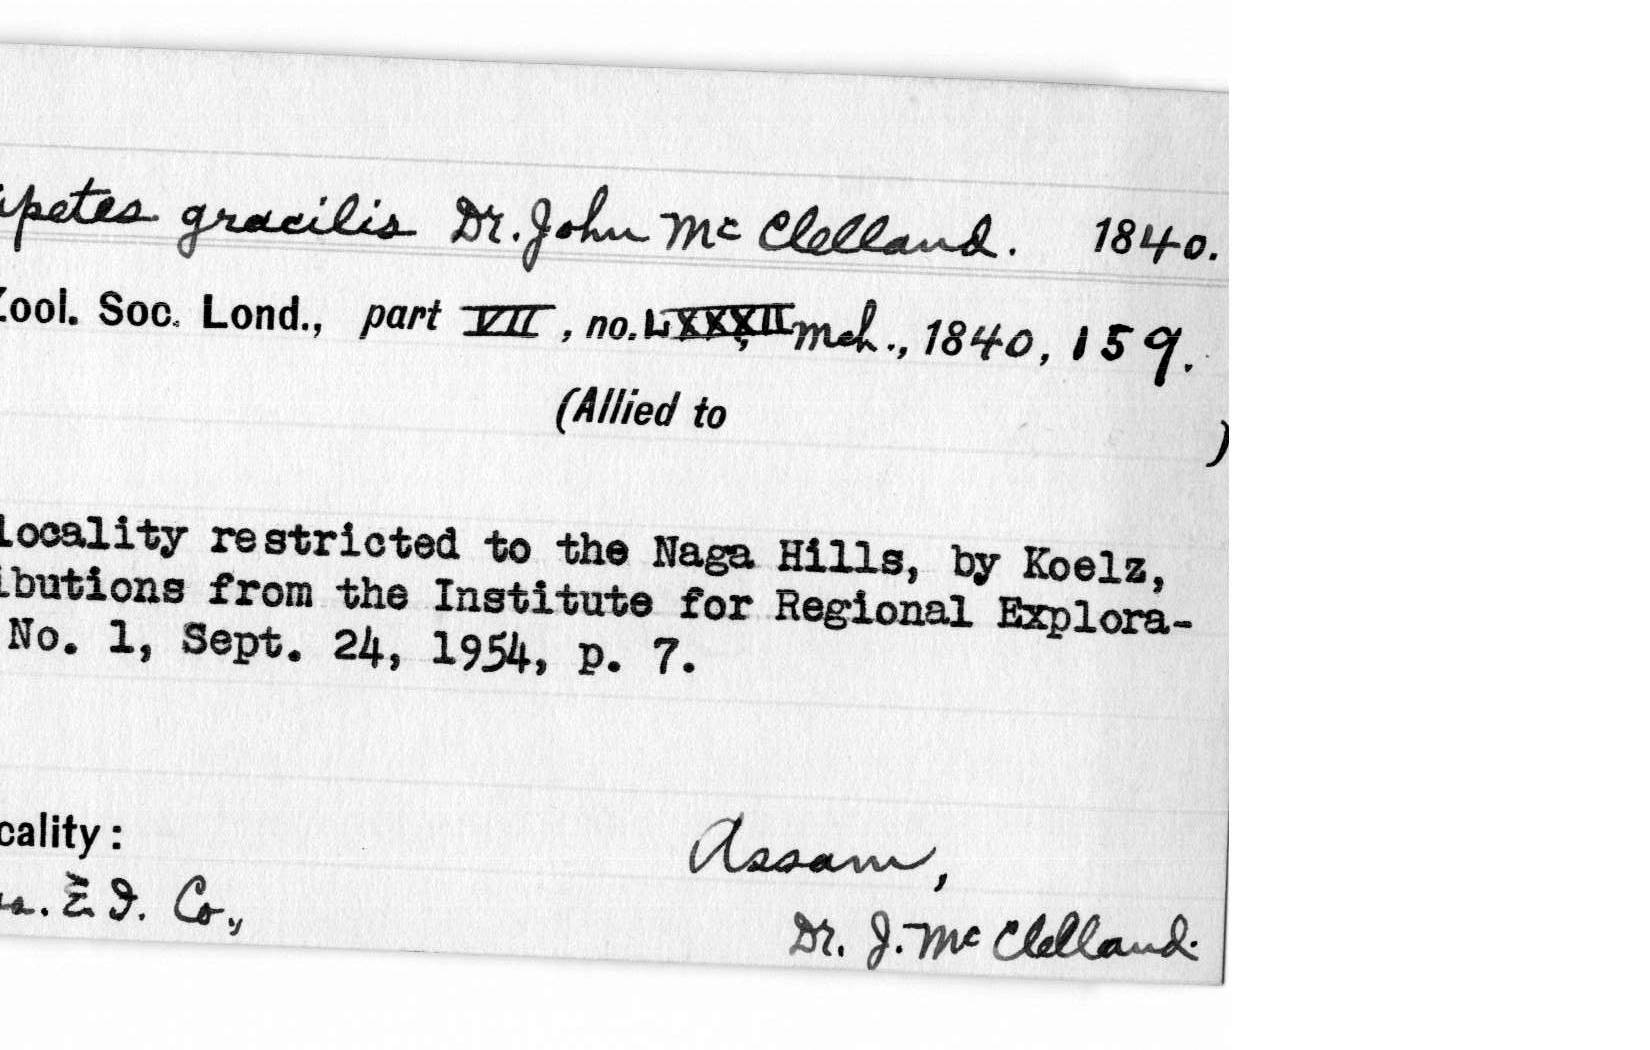 petes gracilis Dr. John Mc Clelland. 1840.
Zool. Soc. Lond., part VII, no. LXXXII, Mch., 1840, 159.
(Allied to )
locality restricted to the Naga Hills, by Koelz,
ibutions from the Institute for Regional Explora-
No. 1, Sept. 24, 1954, p. 7.
cality:
Assam,
E. I. Co.,
Dr. J. Mc Clelland.